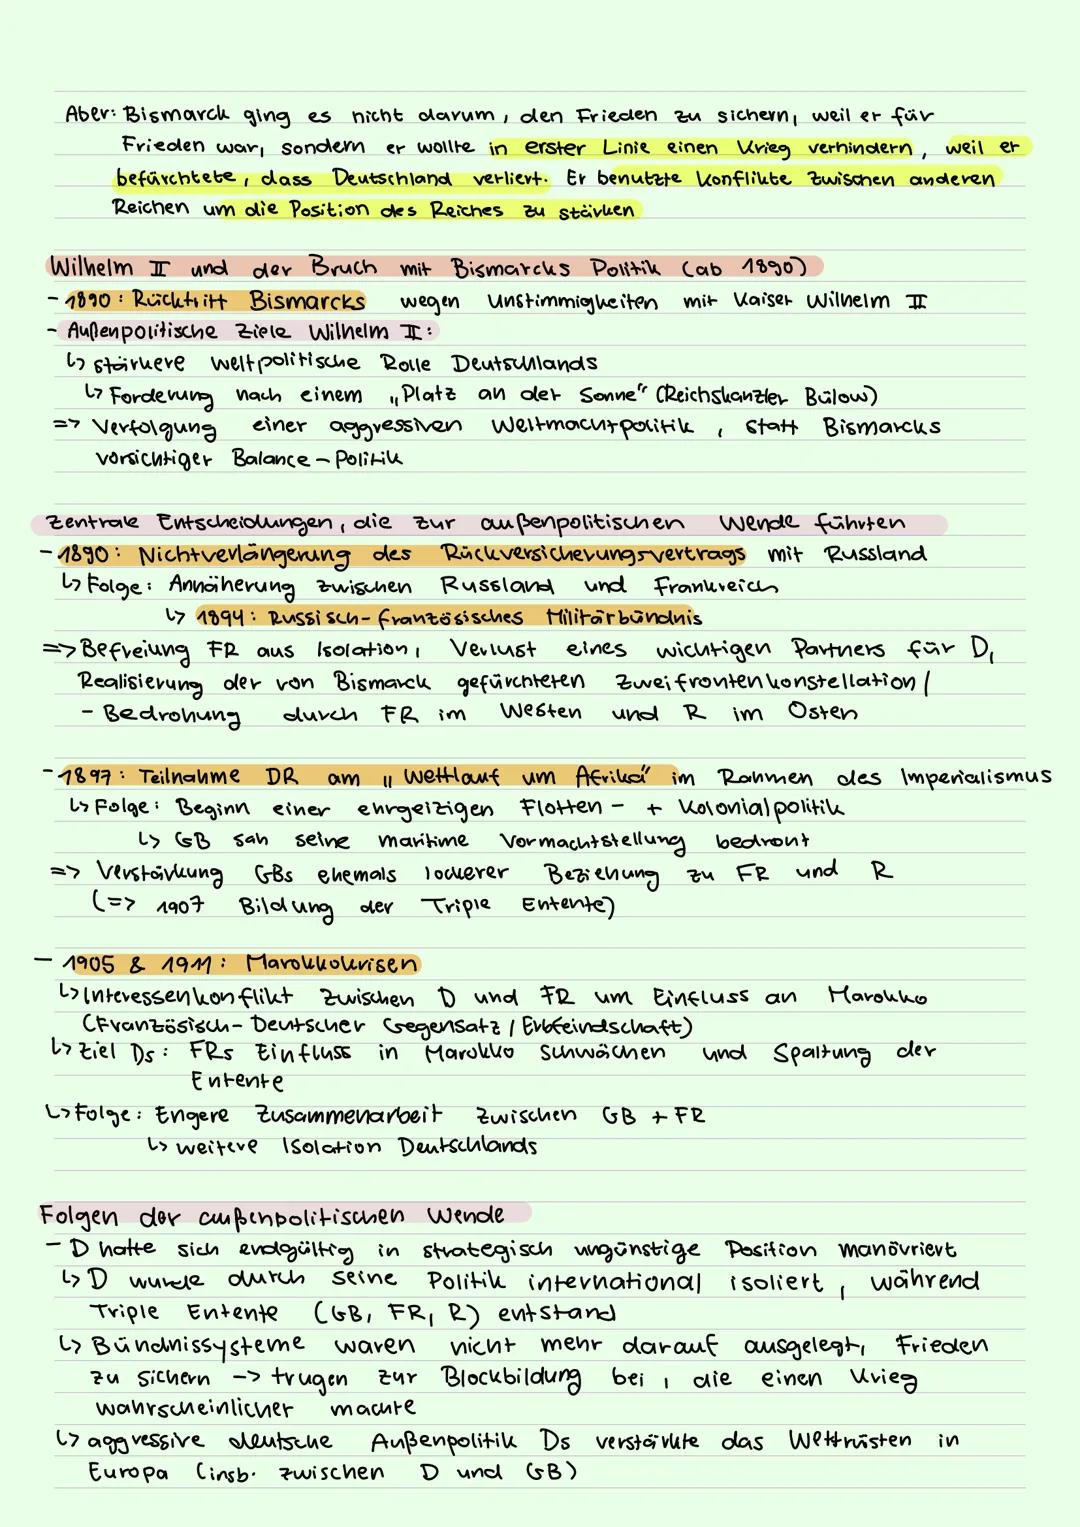 Aber: Bismarck ging es nicht darum, den Frieden zu sichern, weil er für
Frieden war, sondern er wollte in erster Linie einen Krieg verhindern, weil er
befürchtete, dass Deutschland verliert. Er benutzte Konflikte zwischen anderen
Reichen um die Position des Reiches zu stärken
Wilhelm II und der Bruch mit Bismarcks Politik (ab 1890)
- 1890: Rücktritt Bismarcks wegen Unstimmigkeiten mit Kaiser Wilhelm II
- Außenpolitische Ziele Wilhelm II:
↳ stärkere weltpolitische Rolle Deutschlands
↳ Forderung nach einem „Platz an der Sonne" (Reichskanzler Bülow)
=> Verfolgung einer aggressiven Weltmachtpolitik, statt Bismarcks
vorsichtiger Balance-Politik
Zentrale Entscheidungen, die zur außenpolitischen Wende führten
- 1890: Nichtverlängerung des Rückversicherungsvertrags mit Russland
↳ Folge: Annäherung zwischen Russland und Frankreich
↳ 1894: Russisch-französisches Militärbündnis
=> Befreiung FR aus Isolation, Verlust eines wichtigen Partners für D,
Realisierung der von Bismarck gefürchteten Zweifrontenkonstellation/
- Bedrohung durch FR im Westen und R im Osten
- 1897: Teilnahme DR am „Wettlauf um Afrika" im Rahmen des Imperialismus
↳ Folge: Beginn einer ehrgeizigen Flotten- + Kolonialpolitik
↳ GB sah seine maritime Vormachtstellung bedroht
=> Verstärkung GBs ehemals lockerer Beziehung zu FR und R
(=> 1907 Bildung der Triple Entente)
- 1905 & 1911: Marokkokrisen
↳ Interessenkonflikt zwischen D und FR um Einfluss an Marokko
(Französisch-Deutscher Gegensatz / Erbfeindschaft)
↳ Ziel Ds: FRs Einfluss in Marokko schwächen und Spaltung der
Entente
↳ Folge: Engere Zusammenarbeit zwischen GB + FR
↳ weitere Isolation Deutschlands
Folgen der außenpolitischen Wende
- D hatte sich endgültig in strategisch ungünstige Position manövriert
↳ D wurde durch seine Politik international isoliert, während
Triple Entente (GB, FR, R) entstand
↳ Bündnissysteme waren nicht mehr darauf ausgelegt, Frieden
zu sichern -> trugen zur Blockbildung bei, die einen Krieg
wahrscheinlicher machte
↳ aggressive deutsche Außenpolitik Ds verstärkte das Wettrüsten in
Europa (insb. zwischen D und GB)